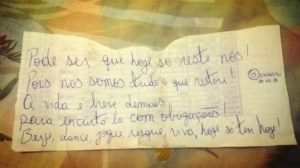 Pode ser que hoje só reste nós!
Pois nós somos tudo o que restou!
A vida é breve demais
para encurtá-la com obrigações!
Beije, dance, jogue, risque, viva, hoje só tem hoje!